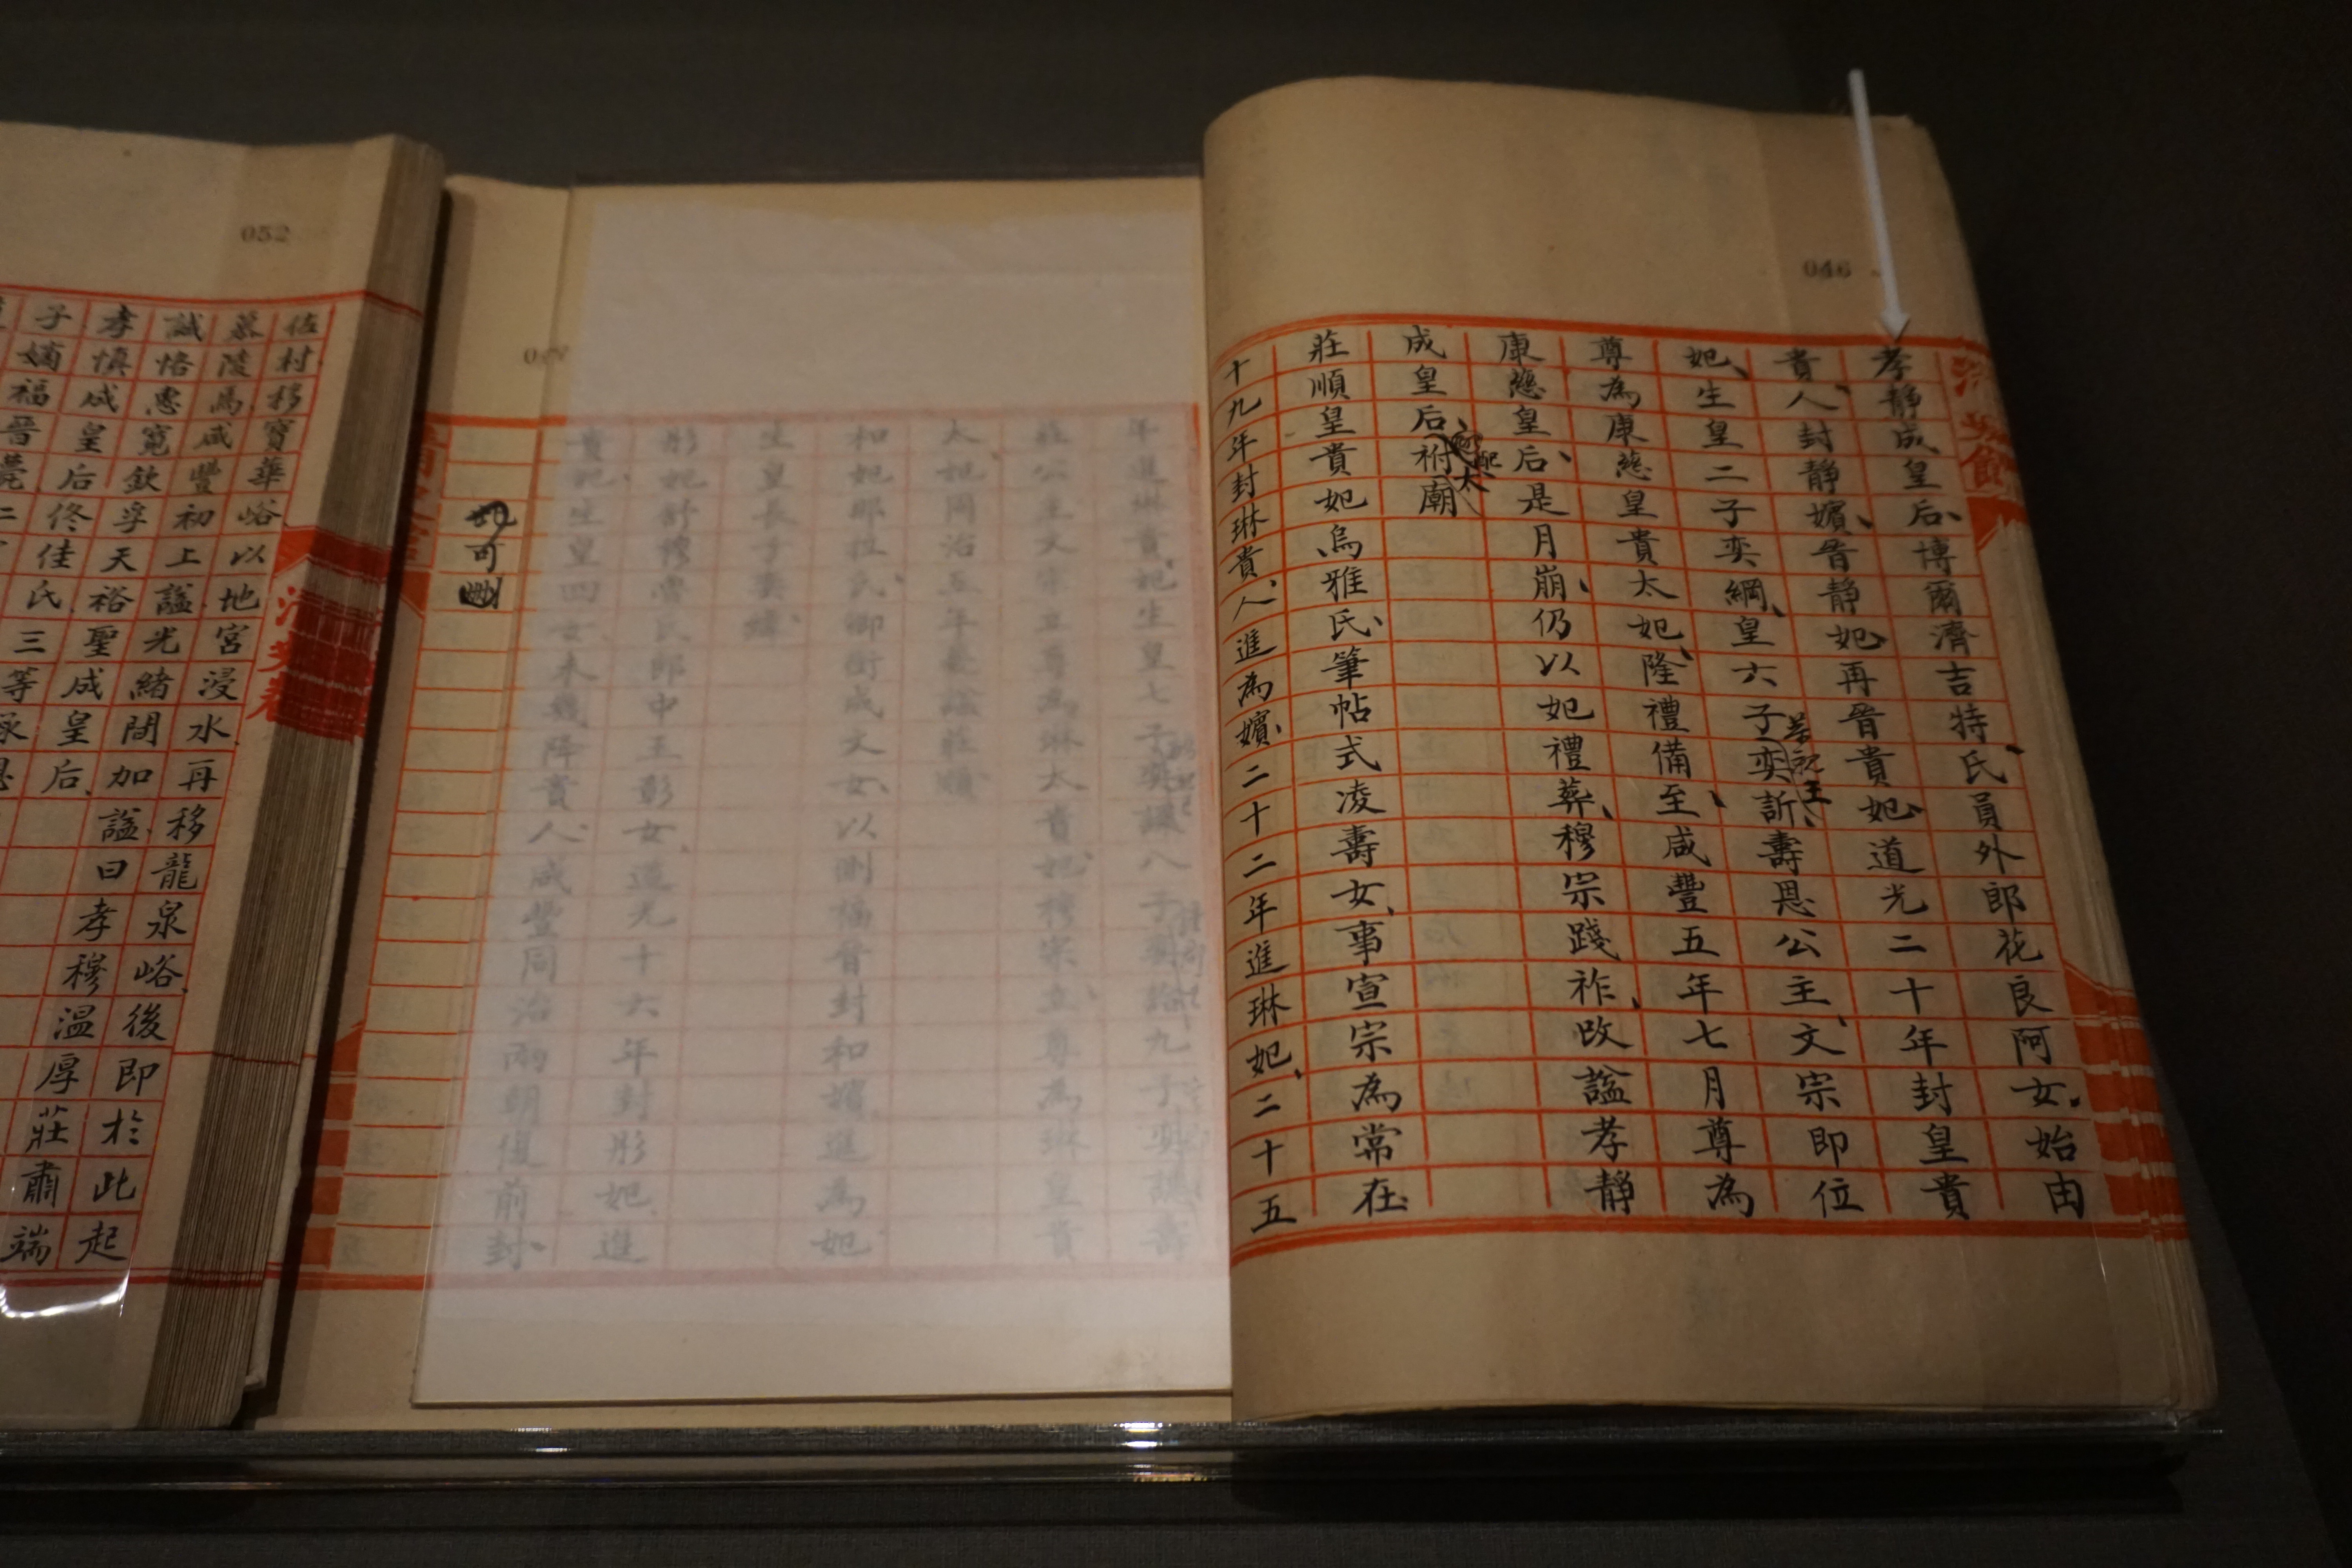 046
清史館
孝靜成皇后、博爾濟吉特氏、員外郎花良阿女、始由
貴人、封靜嬪、晉靜妃、再晉貴妃、道光二十年封皇貴
妃、生皇二子奕綱、皇六子奕訢、壽恩公主、文宗即位
恭親王
尊為康慈皇貴太妃、隆禮備至、咸豐五年七月尊為
康慈皇后、是月崩、仍以妃禮葬、穆宗踐祚、改諡孝靜
成皇后、祔廟
太
莊順皇貴妃烏雅氏、筆帖式凌壽女、事宣宗為常在
十九年封琳貴人、進為嬪、二十二年進琳妃、二十五
年進琳貴妃、生皇七子奕譞八子奕詥九子奕譓壽
莊公主、文宗立尊為琳太貴妃、穆宗立、尊為琳皇貴
太妃、同治五年薨諡莊順
和妃那拉氏、成文女、以側福晉封和嬪、進為妃
生皇長子奕緯、
彤妃舒穆魯氏、郎中玉彰女、道光十六年封彤妃、進
貴妃、生皇四女、未幾降貴人、咸豐同治兩朝復前封、
可刪
052
佐村移寶華峪以地宮浸水再移龍泉峪、後即於此起
慕陵焉、咸豐初上諡光緒間加諡、曰孝穆溫厚莊肅端
誠恪惠寬欽孚天裕聖成皇后、
孝慎成皇后佟佳氏三等承恩
子嫡福晉薨